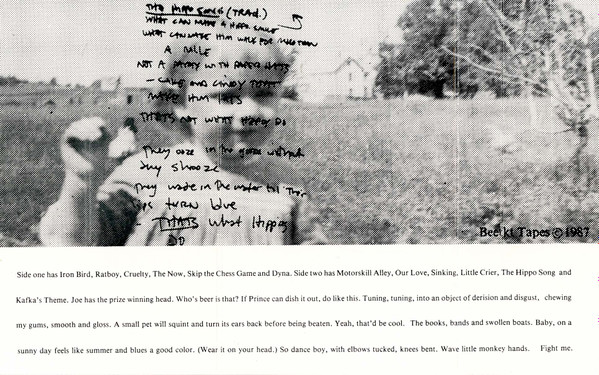 THE HIPPO SONG (TRAD.)
WHAT CAN MAKE A HIPPO SMILE
WHAT CAN MAKE HIM WALK FOR MORE THAN
A MILE
NOT A PARTY WITH PAPER HATS
- CAKE AND CANDY
MAKE HIM
THATS NOT WHAT HIPPOS DO
They ooze in the gooze without
any shooze
They wade in the water til Their
lips TURN blue
- THATS what Hippos
DO
Beef kt Tapes © 1987
Side one has Iron Bird, Ratboy, Cruelty, The Now, Skip the Chess Game and Dyna. Side two has Motorskill Alley, Our Love, Sinking, Little Crier, The Hippo Song and
Kafka's Theme. Joe has the prize winning head. Who's beer is that? If Prince can dish it out, do like this. Tuning, tuning, into an object of derision and disgust, chewing
my gums, smooth and gloss. A small pet will squint and turn its ears back before being beaten. Yeah, that'd be cool. The books, bands and swollen boats. Baby, on a
sunny day feels like summer and blues a good color. (Wear it on your head.) So dance boy, with elbows tucked, knees bent. Wave little monkey hands. Fight me.